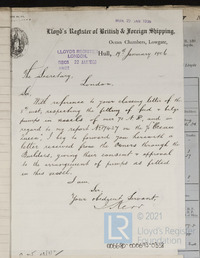 Lloyd's Register of British & Foreign Shipping,
Ocean Chambers, Lowgate,
Hull, 19th January 1906
LLOYD'S REGISTER
LONDON.
The Secretary,
London.
Sir,
With reference to your closing letter of the
5th inst, respecting the fitting of feed & bilge
pumps in vessels of over 70 N.H.P. and in
regard to my report No in the
case, I beg to forward you herewith a
letter received from the Owners through the
Builders, giving their consent & approval
to the arrangement of pumps as fitted
in this vessel.
I am,
Sir,
Your obedient Servant,
© 2021
Lloyd's Register
Foundation